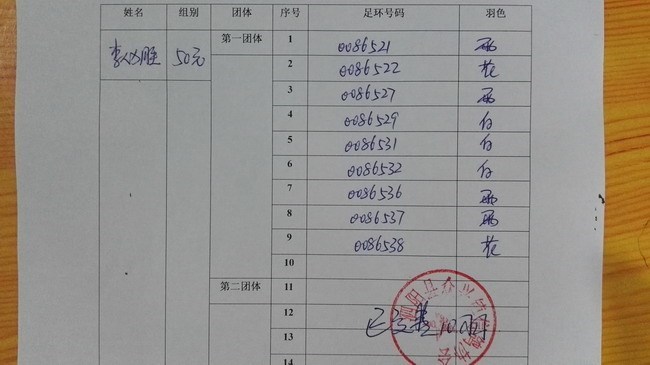 姓名 组别 团体 序号 足环号码 羽色
50元 第一团体 1 0086521 雨
2 0086522 花
3 0086527 雨
4 0086529 白
5 0086531 白
6 0086532 白
7 0086536 雨
8 0086537 雨
9 0086538 花
10
第二团体 11
12
13
14